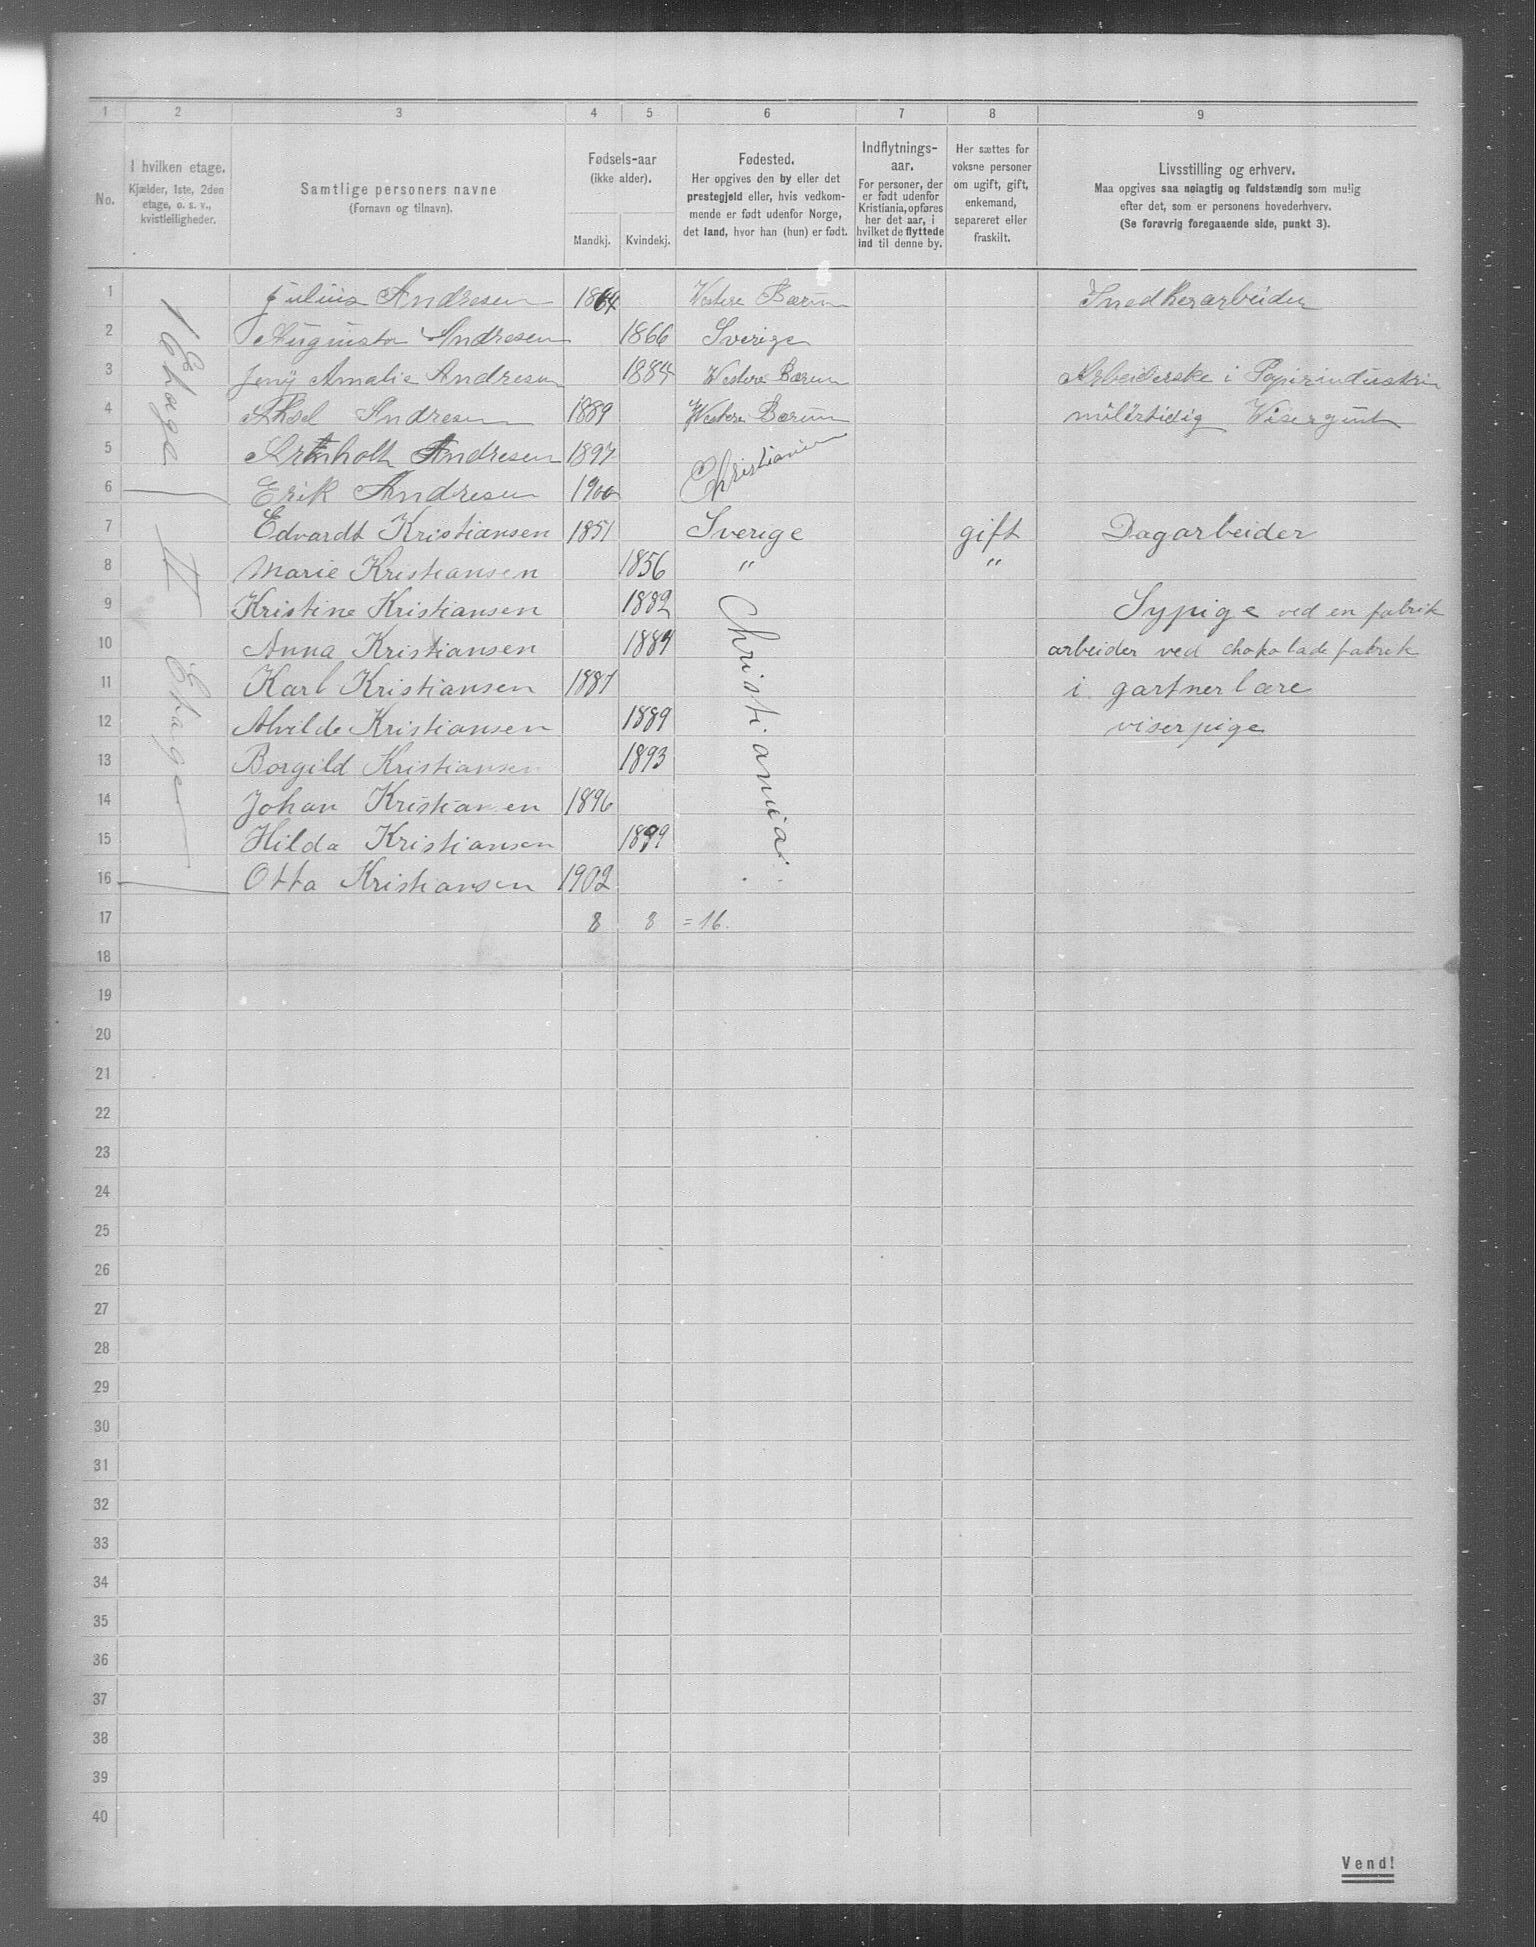 1 2 3 4 5 6 7 8 9
No.
I hvilken etage.
Kjælder, 1ste, 2den
etage, o. s. v.,
kvistleiligheder.
Samtlige personers navne
(Fornavn og tilnavn).
Fødsels-aar
(ikke alder).
Mandkj. Kvindekj.
Fødested.
Her opgives den by eller det
prestegjeld eller, hvis vedkom-
mende er født udenfor Norge,
det land, hvor han (hun) er født.
Indflytnings-
aar.
For personer, der
er født udenfor
Kristiania, opføres
her det aar, i
hvilket de flyttede
ind til denne by.
Her sættes for
voksne personer
om ugift, gift,
enkemand,
separeret eller
fraskilt.
Livsstilling og erhverv.
Maa opgives saa nøiagtig og fuldstændig som mulig
efter det, som er personens hovederhverv.
(Se forøvrig foregaaende side, punkt 3).
1 Etage
1 Julius Andresen 1864 Vestere Bærum Snedkerarbeider
2 Augusta Andresen 1866 Sverige
3 Jeny Amalie Andresen 1884 Westere Bærum Arbeiderske i Papirindustri
4 Aksel Andresen 1889 Westere Bærum Visergut
5 Andresen 1897 Christiania
6 Erik Andresen 1900
II Etage
7 Edvardt Kristiansen 1851 Sverige gift Dagarbeider
8 Marie Kristiansen 1856 " "
9 Kristine Kristiansen 1882 Christiania Sypige ved en fabrik
10 Anna Kristiansen 1884 arbeider ved chokoladefabrik
11 Karl Kristiansen 1887 i gartnerlære
12 Alvilde Kristiansen 1889 viserpige
13 Borgild Kristiansen 1893
14 Johan Kristiansen 1896
15 Hilda Kristiansen 1899
16 Otto Kristiansen 1902
17 8 8 = 16.
18
19
20
21
22
23
24
25
26
27
28
29
30
31
32
33
34
35
36
37
38
39
40
Vend!